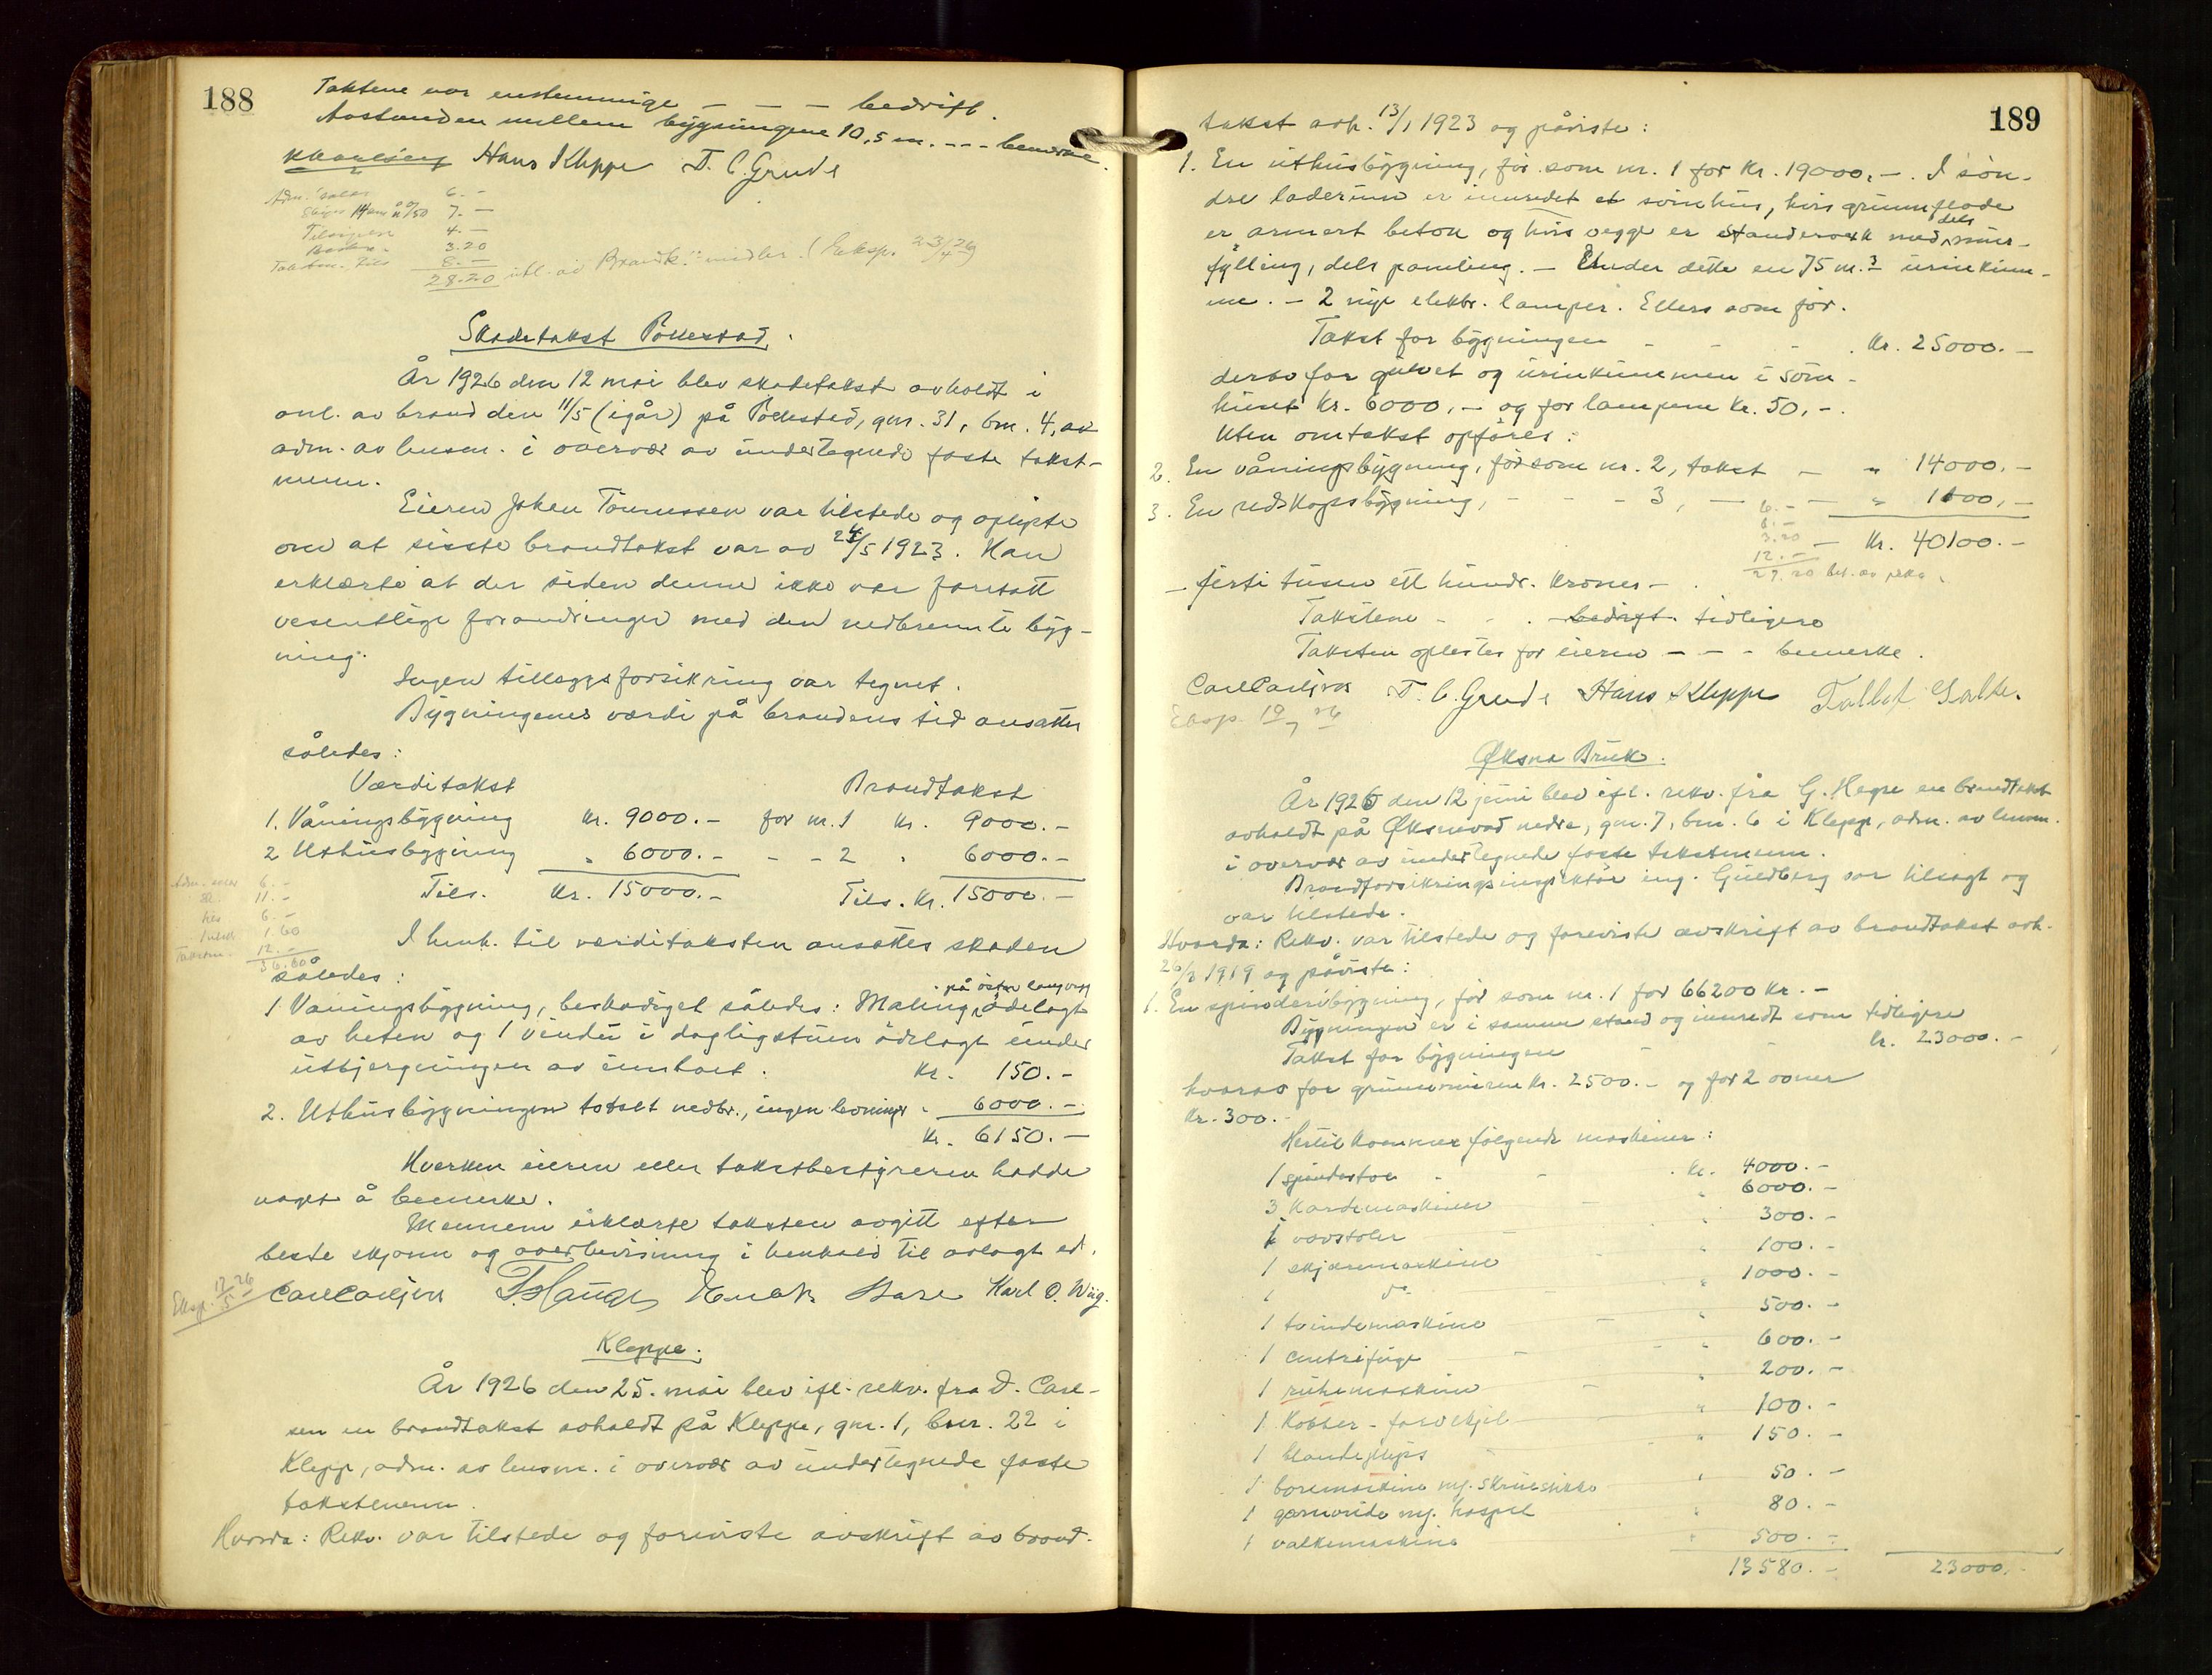 188
Takstene var enstemmige — — — bedrift.
Avstanden mellem bygningene 10,5 m. - - - bemerke.
Hans Kleppe T. C. Grude
6.-
7.-
4.-
3.20
8.-
28.20 utl. av Brandk. midler. (Eksp. 23/4 26)
Skadetakst Pollestad.
År 1926 den 12 mai blev skadetakst avholdt i
anl. av brand den 11/5 (igår) på Pollestad, gnr. 31, bnr. 4, av
adm. av lensm. i overvær av undertegnede faste takst-
menn.
Eieren Jakob Tønnessen var tilstede og oplyste
om at siste brandtakst var av 24/5 1923. Han
erklærte at der siden denne ikke var foretatt
vesentlige forandringer med den nedbrente byg-
ning.
Ingen tilleggsforsikring var tegnet.
Bygningenes værdi på brandens tid ansattes
således:
Værditakst Brandtakst
1. Våningsbygning kr. 9000.- for nr. 1 kr. 9000.-
2 Uthusbygning " 6000.- - - 2 " 6000.-
Tils. kr. 15000.- Tils. kr. 15000.-
6.-
11.-
6.-
1.60
12.-
36.60
I henh. til værditaksten ansattes skaden
således:
på østre langvegg
1 Våningsbygning, beskadiget således: Maling ødelagt
av heten og 1 vindu i dagligstuen ødelagt under
utbjergningen av innboet. kr. 150.-
2. Uthusbygningen totalt nedbr., ingen levninger " 6000.-
kr. 6150.-
Hverken eieren eller takstbestyreren hadde
noget å bemerke.
Mennene erklærte taksten avgitt efter
beste skjønn og overbevisning i henhold til avlagt ed.
Eksp. 17/5 26 Carl Carlsen T. Hauge Karl O. Wiig.
Kleppe.
År 1926 den 25. mai blev ifl. rekv. fra D. Carl-
sen en brandtakst avholdt på Kleppe, gnr. 1, bnr. 22 i
Klepp, adm. av lensm. i overvær av undertegnede faste
takstmenn.
Hvorda: Rekv. var tilstede og foreviste avskrift av brand-
189
takst avh. 13/1 1923 og påviste:
1. En uthusbygning, før som nr. 1 for kr. 19000,-. I søn-
dre laderum er innredet et svinhus, hvis grunnflade
er armert beton og hvis vegge er standerverk med dels mur-
fylling, dels panding. - Under dette en 75 m.3 urinkum-
me. - 2 nye elektr. lamper. Ellers som før.
Takst for bygningen - - - kr. 25000.-
derav for gulvet og urinkummen i svin-
huset kr. 6000,- og for lampene kr. 50,-.
Uten omtakst opføres:
2. En våningsbygning, før som nr. 2, takst - " 14000.-
3. En redskapsbygning, - - - 3, - - " 1100,-
6.-
3.20
12.-
- kr. 40100.-
- førti tusen ett hundr. kroner -
Takstene - - - bedrift. tidligere
Taksten oplestes for eieren - - - bemerke.
Carl Carlsen T. C. Grude Hans Kleppe Tallef Salte.
Øksna Bruk.
År 1926 den 12 juni blev ifl. rekv. fra G. Hegre en brandtakst
avholdt på Øksnevad nedre, gnr. 7, bnr. 6 i Klepp, adm. av lensm.
i overvær av undertegnede faste takstmenn.
Brandforsikringsinspektør ing. Guldberg var tilsagt og
var tilstede.
Hvorda: Rekv. var tilstede og foreviste avskrift av brandtakst avh.
1919 og påviste:
1. En spinderibygning, før som nr. 1 for 66200 kr. -
Bygningen er i samme stand og innredt som tidligere
Takst for bygningen - - kr. 23000.-
hvorav for grunnmurene kr. 2500.- og for 2 ovner
kr. 300.-
Hertil kommer følgende maskiner:
1 spindestol - - kr. 4000.-
3 kardemaskiner - " 6000.-
vevstoler " 300.-
1 skjæremaskine " 100.-
1 do " 1000.-
1 tvindemaskine - " 500.-
1 centrifuge - " 600.-
1 ruhemaskine - " 200.-
1 kobber-farvekjel " 100.-
1 " 150.-
1 boremaskine m/. skruestikke " 50.-
1 garnvinde m/. haspel " 80.-
1 valkemaskine " 500.-
13580.- 23000.-